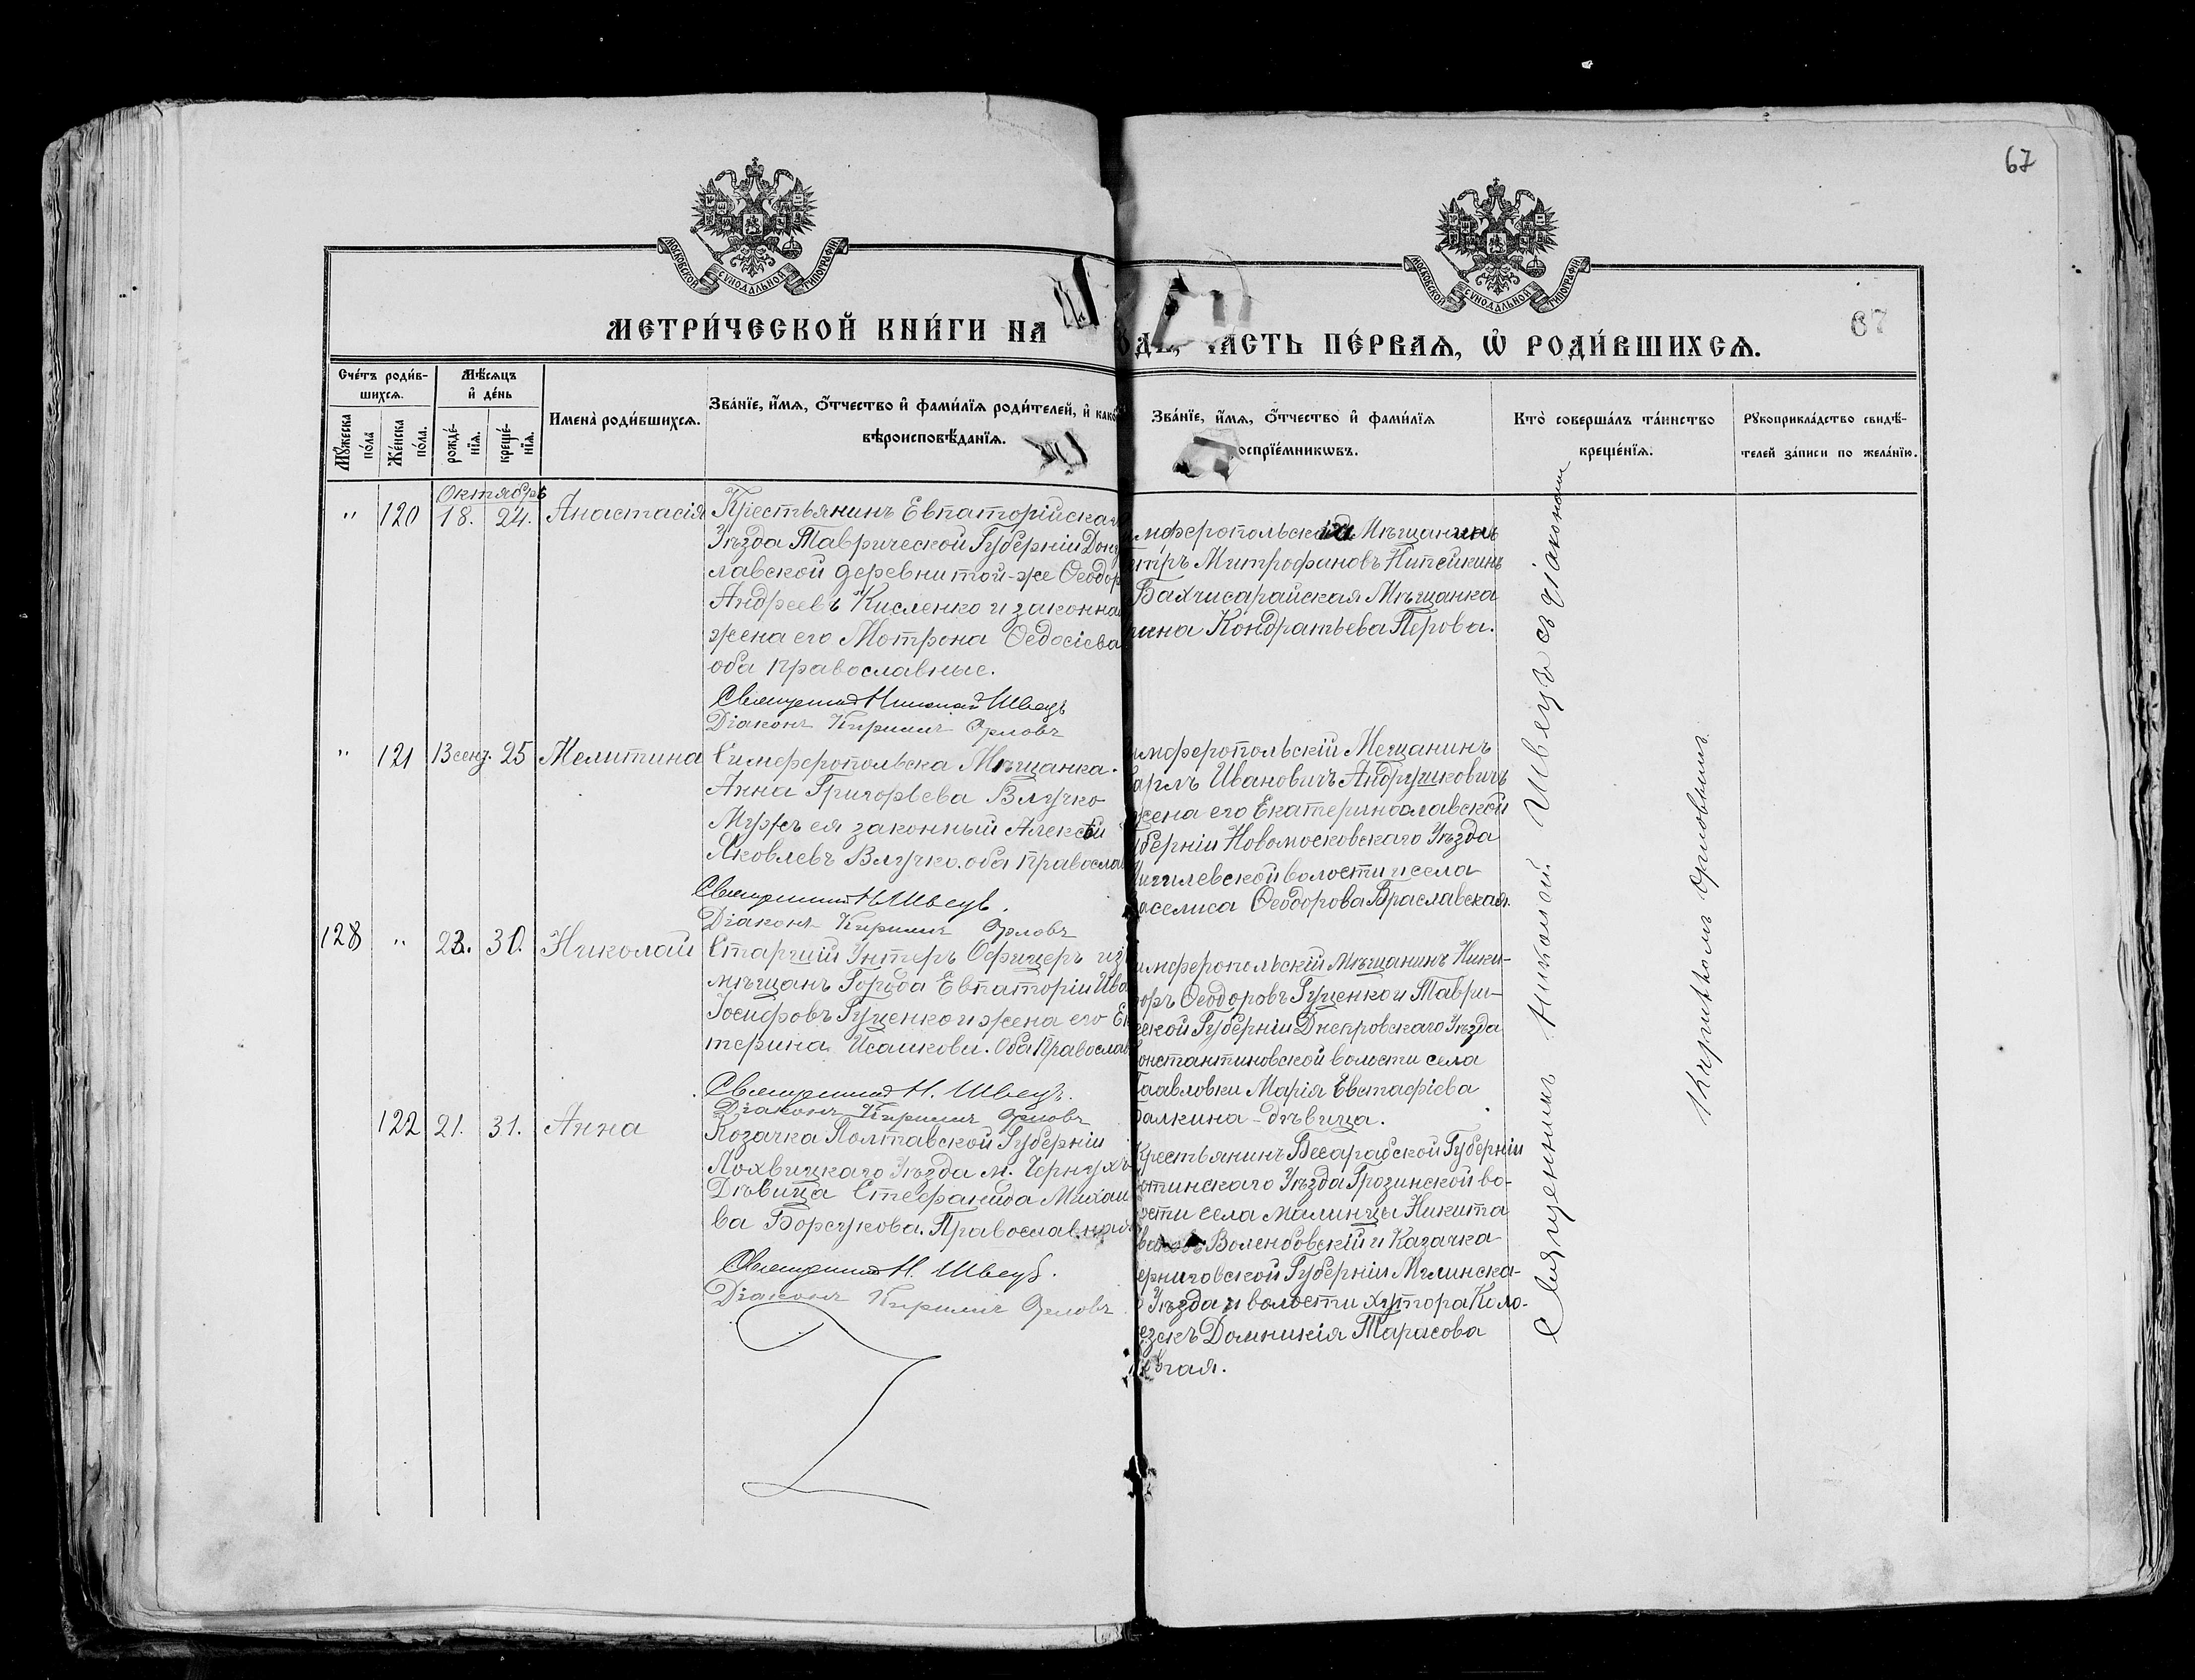 67
МОСКОВСКОЙ СУНОДАЛЬНОЙ ТИПОГРАФІИ
МОСКОВСКОЙ СУНОДАЛЬНОЙ ТИПОГРАФІИ
67
МЕТРИ́ЧЕСКОЙ КНИ́ГИ НА
ЧАСТЬ ПЕ́РВАѦ, Ѡ҆ РОДИ́ВШИХСѦ.
Сче́тъ роди́в-
шихсѧ.
Мѣ́сѧцъ
и҆ де́нь
Мꙋ́жеска
по́ла
Же́нска
по́ла.
рожде́-
нїѧ.
креще́-
нїѧ.
Имена̀ роди́вшихсѧ.
Зва́нїе, и҆́мѧ, ѻ҆́тчество и҆ фами́лїѧ роди́телей, и҆ како
вѣроисповѣ́данїѧ.
Зва́нїе, и҆́мѧ, ѻ҆́тчество и҆ фами́лїѧ
оспрїе́мникѡвъ.
Кто̀ соверша́лъ та́инство
креще́нїѧ.
Рꙋкоприкла́дство свидѣ́-
телей за́писи по жела́нїю.
Октябрь
" 120 18. 24. Анастасія
Крестьянинъ Евпаторійска
Уѣзда Таврической Губерніи Дону
лавской деревни той-же Ѳеодор
Андреевъ Кисленко и законна
жена его Мотрона Ѳедосіева
оба православные.
Священникъ Николай Швецъ
Діаконъ Кириллъ Орловъ
мферопольск Мѣщанинъ
тръ Митрофановъ Нипейкинъ
Бахчисарайская Мѣщанка
рина Кондратьева Перова.
" 121 13 сент. 25 Мелитина
Симферопольска Мѣщанка.
Анна Григорьева Влучко
Мужъ ея законный Алексѣй
Яковлевъ Влучко. оба Православ
Священникъ Н Швецъ.
Діаконъ Кириллъ Орловъ
имферопольскій Мещанинъ
арлъ Ивановичъ Андрушковичъ
жена его Екатеринославской
уберніи Новомосковскаго Уѣзда
ичилевской волости и села
аселиса Ѳеодорова Враславская.
128 " 23. 30. Николай
Старшій Унтеръ Офицеръ из
мѣщанъ Города Евпаторіи Ива
Іосифовъ Гуценко и жена его Ек
терина Исаикови. Оба Православ
Священникъ Н. Швецъ.
Діаконъ Кириллъ Орловъ
имферопольскій мѣщанинъ Ники-
оръ Ѳеодоровъ Гуценко и Таври-
ской Губерніи Днепровскаго Уѣзда
онстантиновской волости села
авловки Марія Евстафіева
алкина - дѣвица.
122 21. 31. Анна
Козачка Полтавской Губерніи
Лохвицкаго Уѣзда м. Чернухъ
Дѣвица Стефанида Михаи
ва Борсукова. Православная
Священникъ Н. Швецъ.
Діаконъ Кириллъ Орловъ
Крестьянинъ Бесарабской Губерніи
отинскаго Уѣзда Грозинской во-
ости села Малинцы Никита
Волендовскій и Казачка
ерниговской Губерніи Мглинска-
о Уѣзда и волости хутора Коло-
езскъ Домникія Тарасова
гая.
Священникъ Николай Швецъ съ діакономъ
Кирилломъ Орловымъ